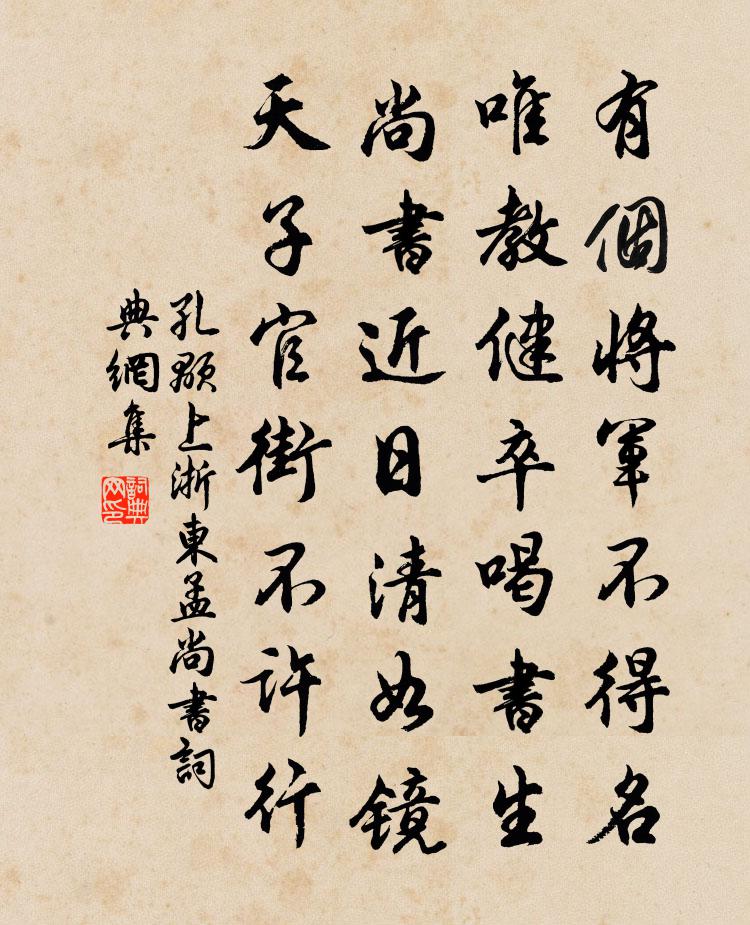 有個將軍不得名
唯教健卒喝書生
尚書近日清如镜
天子官街不許行
孔顒上浙東孟尚書詞
典網集
詞典网印